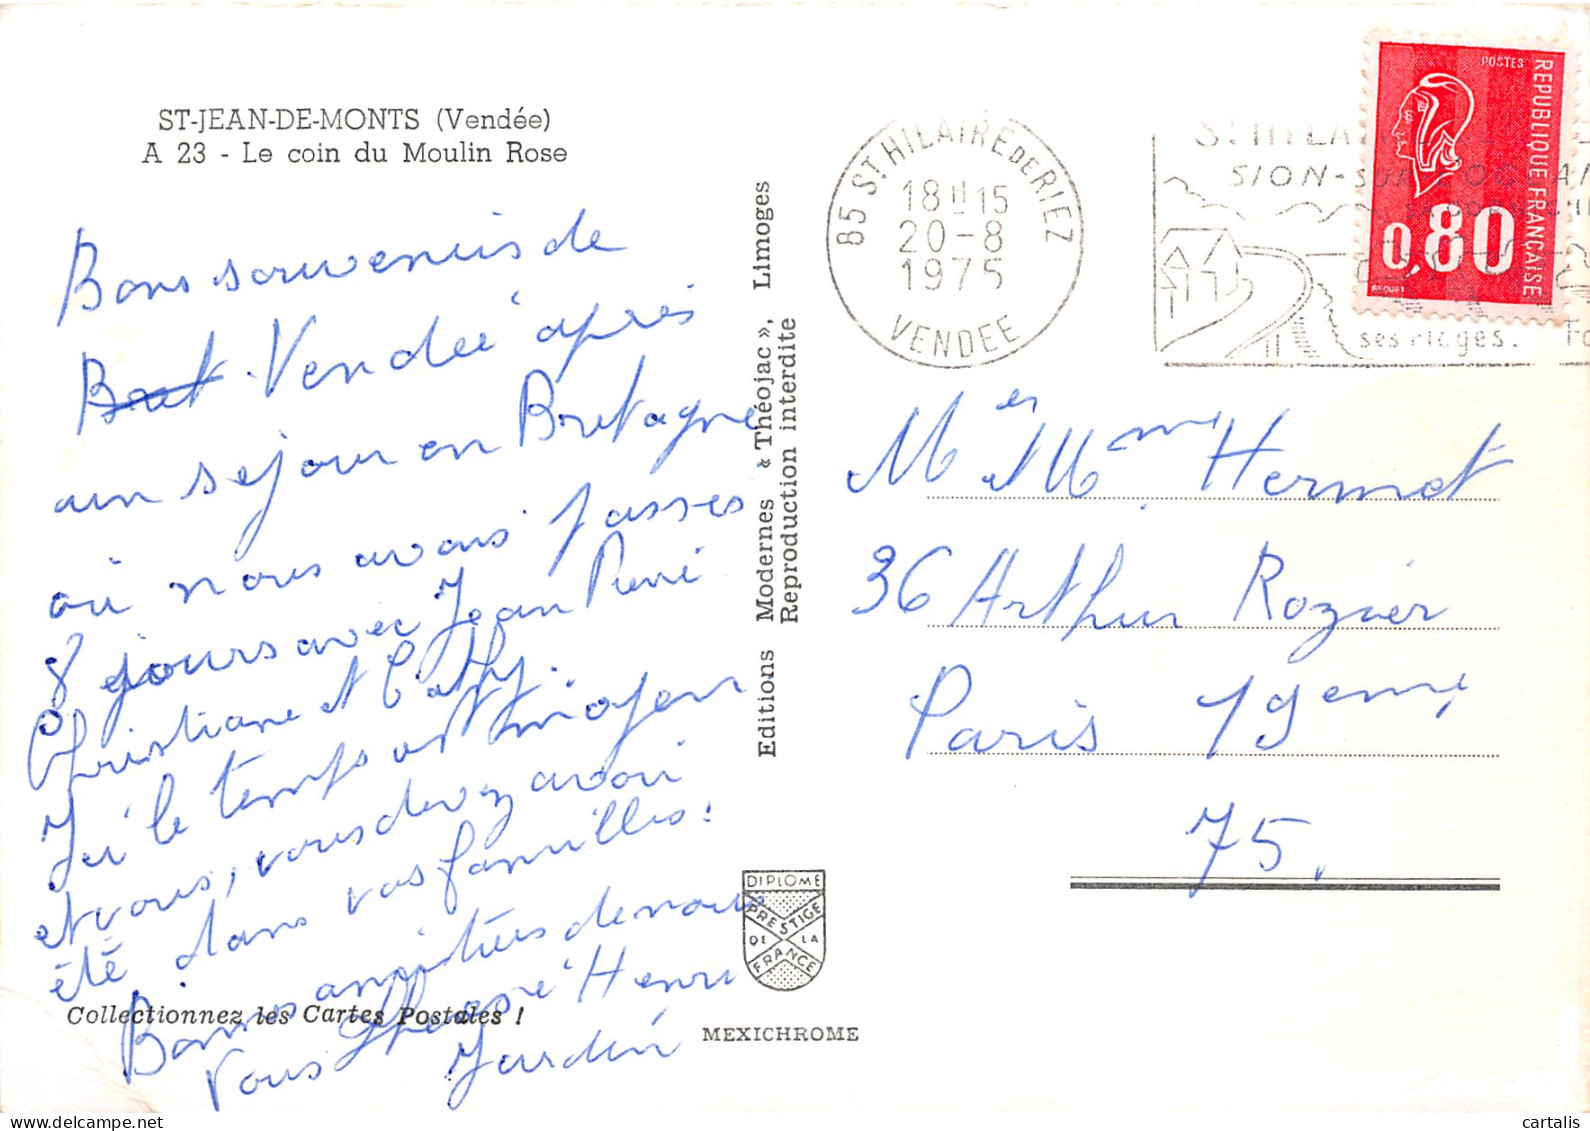 ST-JEAN-DE-MONTS (Vendée)
A 23 - Le coin du Moulin Rose
Bons souvenirs de
Bret Vendée après
un séjour en Bretagne
où nous avons passés
8 jours avec Jean René
Christiane et Cathy.
Ici le temps est moyen
et vous, vous devez avoir
été dans vos familles.
Bonnes amitiés de nous
Vous Henri
Jardin
Collectionnez les Cartes Postales !
Editions Modernes « Théojac », Limoges
Reproduction interdite
DIPLOME
PRESTIGE
DE LA
FRANCE
MEXICHROME
85 ST HILAIRE DE RIEZ
18H15
20-8
1975
VENDEE
ST HILA
SION-SUR-OCEAN
ses plages.
POSTES
REPUBLIQUE FRANÇAISE
0,80
BEQUET
Mer et Mme Hermet
36 Arthur Rozier
Paris 19eme
75.
cartalis